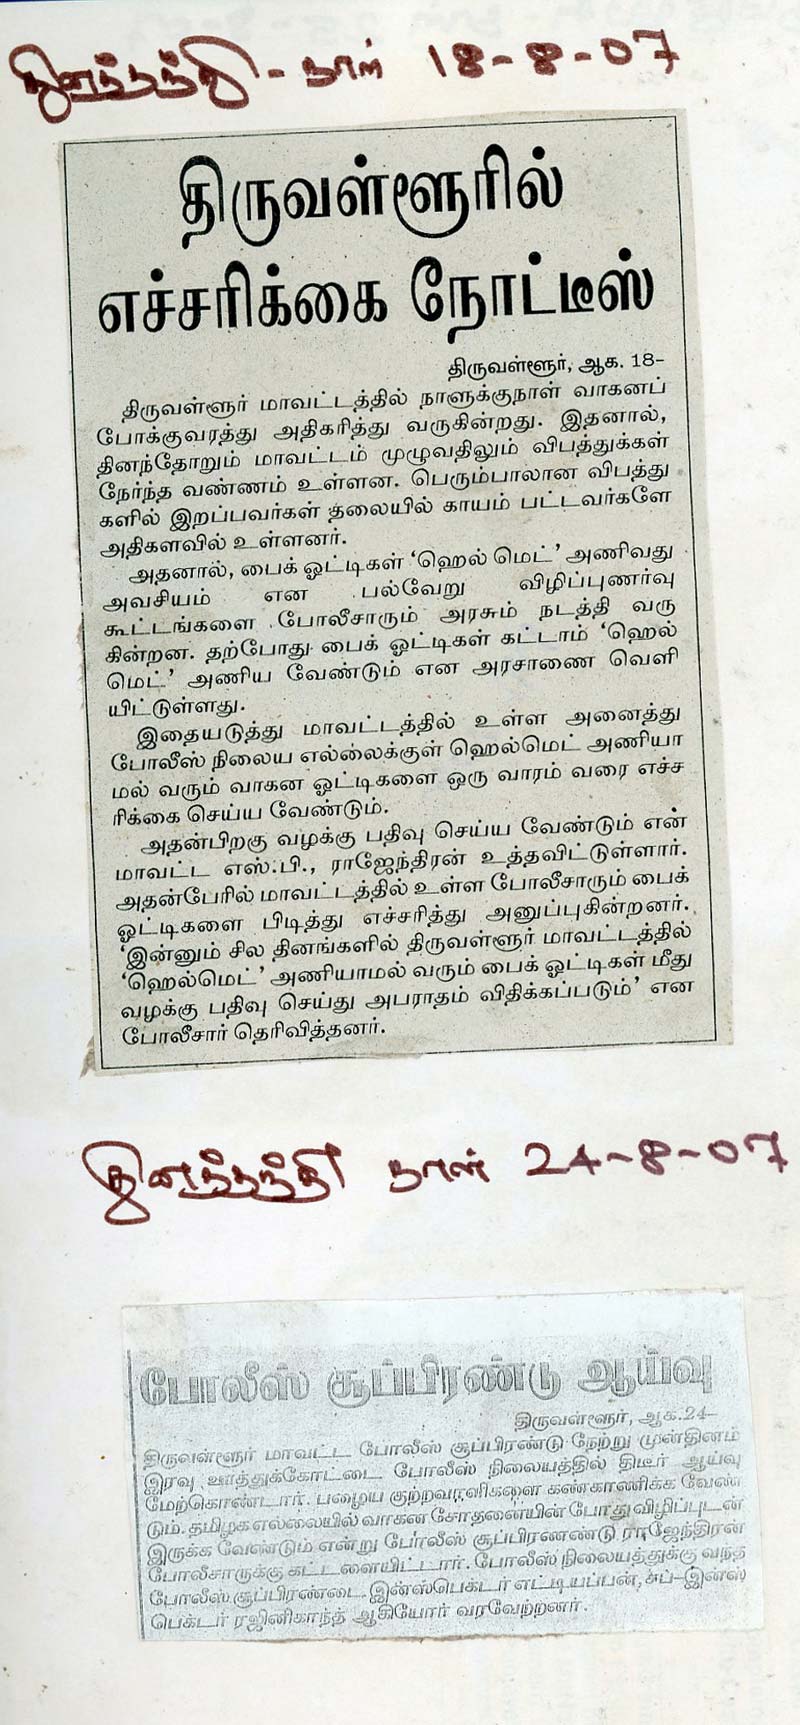 தினத்தந்தி - நாள் 18-8-07
திருவள்ளூரில்
எச்சரிக்கை நோட்டீஸ்
திருவள்ளூர், ஆக. 18–
திருவள்ளூர் மாவட்டத்தில் நாளுக்குநாள் வாகனப்
போக்குவரத்து அதிகரித்து வருகின்றது. இதனால்,
தினந்தோறும் மாவட்டம் முழுவதிலும் விபத்துக்கள்
நேர்ந்த வண்ணம் உள்ளன. பெரும்பாலான விபத்து
களில் இறப்பவர்கள் தலையில் காயம் பட்டவர்களே
அதிகளவில் உள்ளனர்.
அதனால், பைக் ஓட்டிகள் ‘ஹெல் மெட்’ அணிவது
அவசியம் என பல்வேறு விழிப்புணர்வு
கூட்டங்களை போலீசாரும் அரசும் நடத்தி வரு
கின்றன. தற்போது பைக் ஓட்டிகள் கட்டாம் ‘ஹெல்
மெட்’ அணிய வேண்டும் என அரசாணை வெளி
யிட்டுள்ளது.
இதையடுத்து மாவட்டத்தில் உள்ள அனைத்து
போலீஸ் நிலைய எல்லைக்குள் ஹெல்மெட் அணியா
மல் வரும் வாகன ஓட்டிகளை ஒரு வாரம் வரை எச்ச
ரிக்கை செய்ய வேண்டும்.
அதன்பிறகு வழக்கு பதிவு செய்ய வேண்டும் என்
மாவட்ட எஸ்.பி., ராஜேந்திரன் உத்தவிட்டுள்ளார்.
அதன்பேரில் மாவட்டத்தில் உள்ள போலீசாரும் பைக்
ஓட்டிகளை பிடித்து எச்சரித்து அனுப்புகின்றனர்.
‘இன்னும் சில தினங்களில் திருவள்ளூர் மாவட்டத்தில்
‘ஹெல்மெட்’ அணியாமல் வரும் பைக் ஓட்டிகள் மீது
வழக்கு பதிவு செய்து அபராதம் விதிக்கப்படும்’ என
போலீசார் தெரிவித்தனர்.
தினத்தந்தி நாள் 24-8-07
போலீஸ் சூப்பிரண்டு ஆய்வு
திருவள்ளூர், ஆக.24–
திருவள்ளூர் மாவட்ட போலீஸ் சூப்பிரண்டு நேற்று முன்தினம்
இரவு ஊத்துக்கோட்டை போலீஸ் நிலையத்தில் திடீர் ஆய்வு
மேற்கொண்டார். பழைய குற்றவாளிகளை கண்காணிக்க வேண்
டும். தமிழக எல்லையில் வாகன சோதனையின் போது விழிப்புடன்
இருக்க வேண்டும் என்று போலீஸ் சூப்பிரணண்டு ராஜேந்திரன்
போலீசாருக்கு கட்டளையிட்டார். போலீஸ் நிலையத்துக்கு வந்த
போலீஸ் சூப்பிரண்டை இன்ஸ்பெக்டர் எட்டியப்பன், சப்–இன்ஸ்
பெக்டர் ரஜினிகாந்த் ஆகியோர் வரவேற்றனர்.